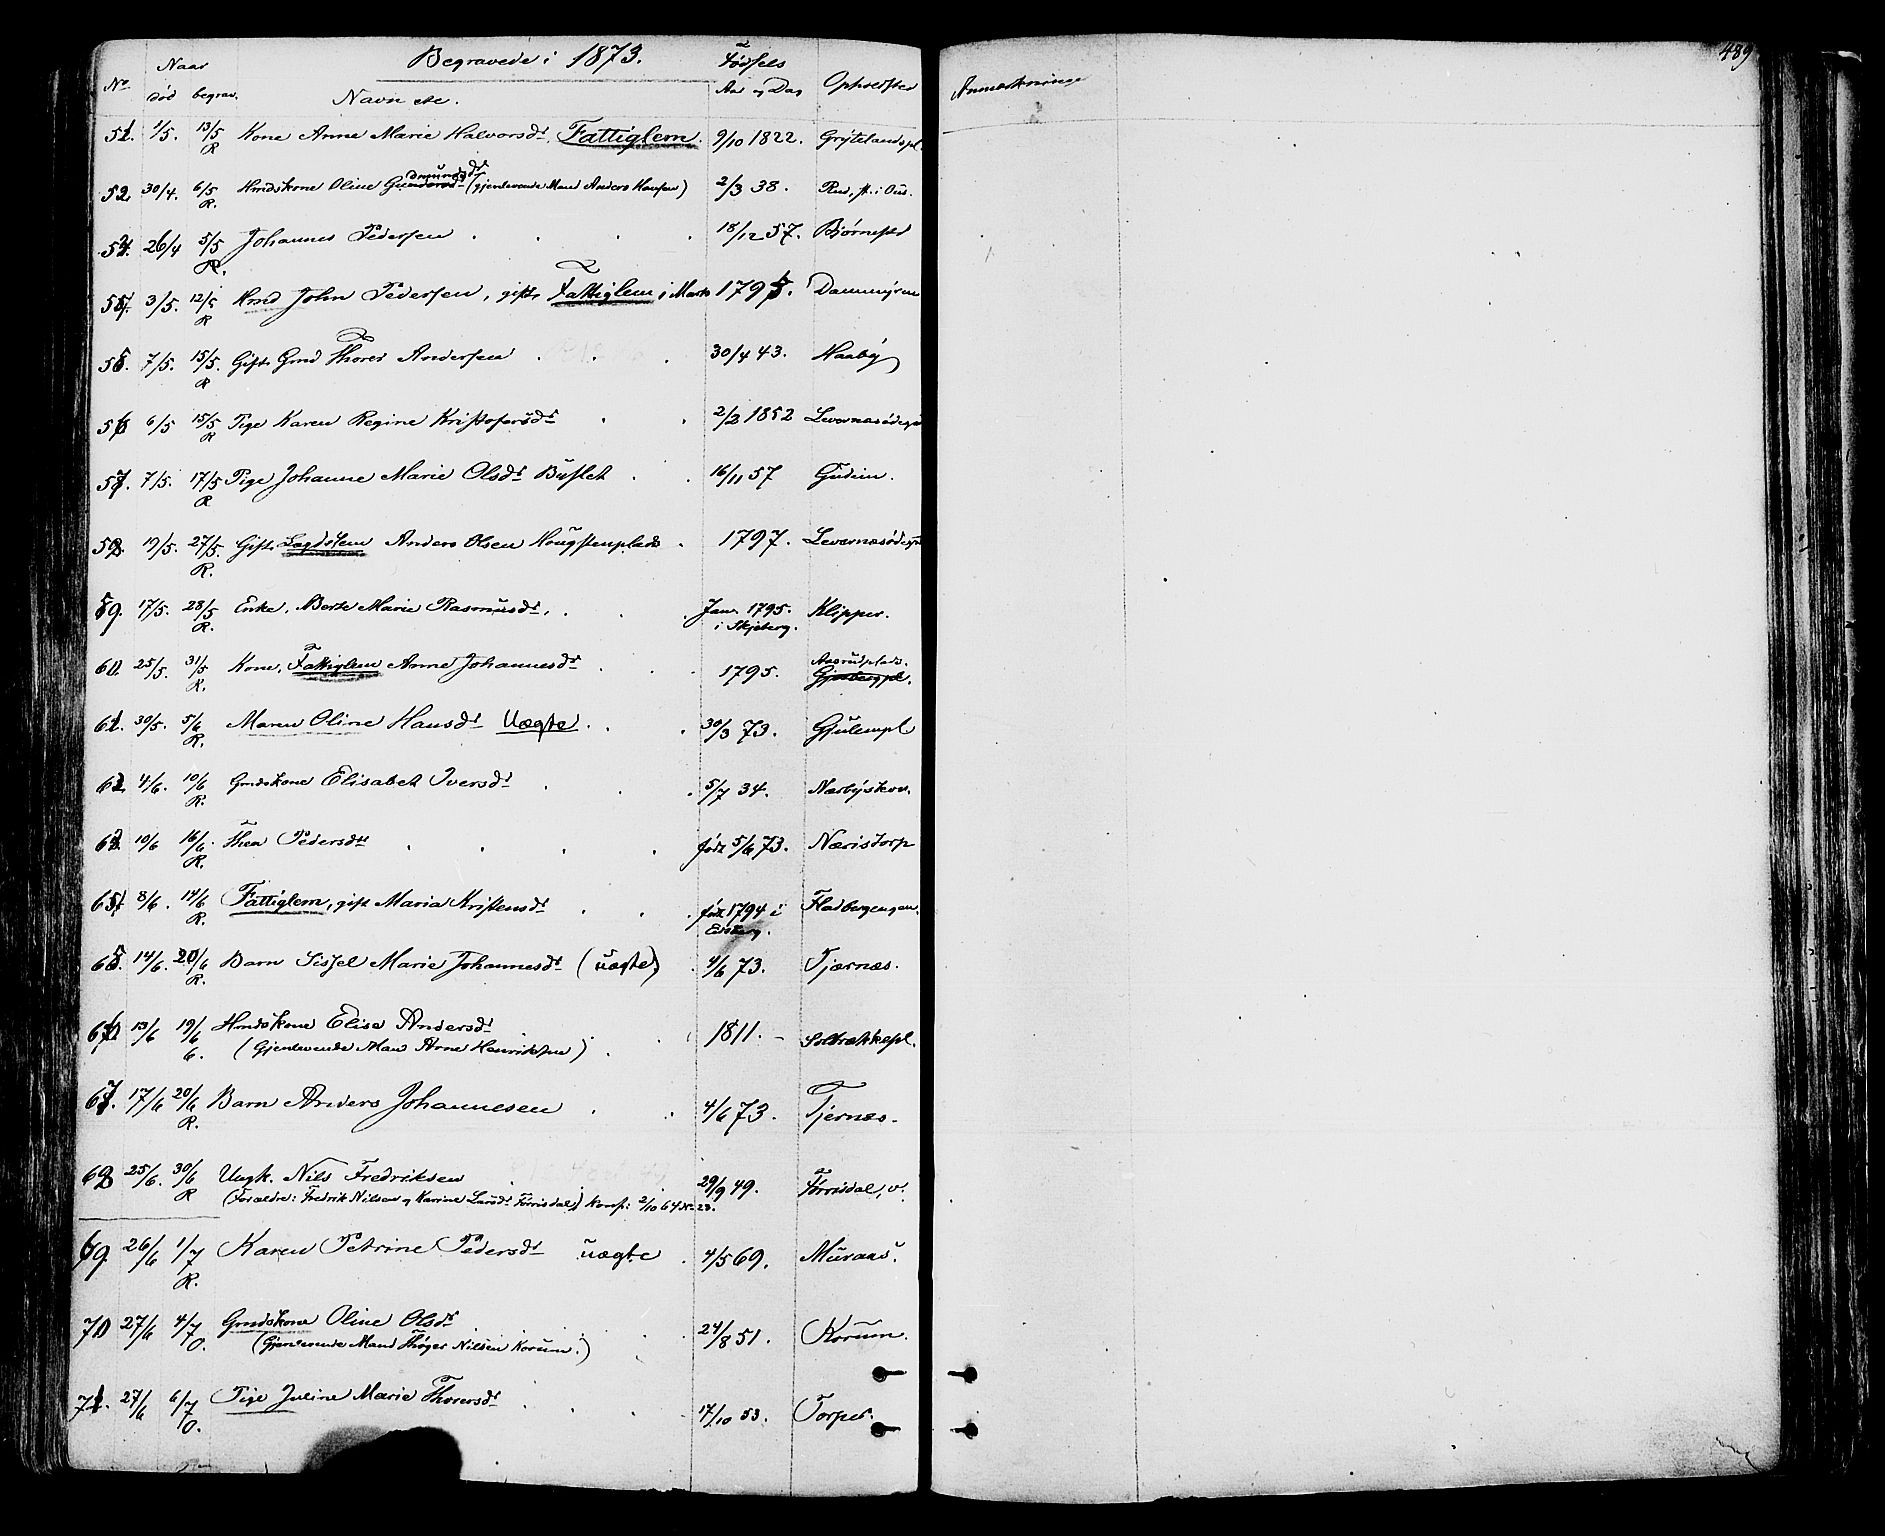 Begravede i 1873.
No Naar død begrav. Navn etc. Fødsels Aar og Dag Opholdsted Anmærkninger 489
51. 1/5. 13/5 R Kone Anne Marie Halvorsdr. Fattiglem. 9/10 1822. Grytelandspl.
52. 30/4. 6/5 R. Hmdskone Oline Gudmundsdr (gjenlevende Mand Anders Hansen) 2/3 38. Rud,
26/4 5/5 R. Johannes Pedersen 18/12 57. Bjørnstad
3/5. 12/5 R Hmd John Pedersen, gift, Fattiglem i Mark Dammyren
55. 7/5. 15/5. R Gift Gmd Thorer Andersen 30/4 43. Naaby
56 6/5 15/5 R Pige Karen Regine Kristofersdr 2/2 1852 Levernæsødegd
57. 7/5. 17/5 R Pige Johanne Marie Olsdr Buflet 16/11 57 Gudim.
58. 19/5. 27/5. R. Gift Lægdslem Anders Olsen Hougstenplads 1797. Levernæsødegd
59. 17/5. 28/5 R. Enke, Berte Marie Rasmusdr. Jan. 1795. i Skjeberg. Klipper.
60. 25/5. 31/5 R. Kone, Fattiglem Anne Johannesdr 1795. Aasrudplads. Gjesbergpl.
61. 30/5. 5/6 R. Maren Oline Hansdr Uægte 30/3 73. Gjulempl
62. 4/6. 10/6 R. Gmdskone Elisabet Iversdr 5/7 34. Nærbyskov.
63. 10/6 16/6. R. Thea Pedersdtr født 5/6 73. Næristorp
64. 8/6. 14/6 R. Fattiglem, gift Maria Kristensdr født 1794 i Eidsberg. Fladbergengen.
65. 14/6. 20/6 R. Barn Sissel Marie Johannesdr (uægte) 4/6 73. Tjærnæs.
66 13/6 19/6 6. Hmdskone Elise Andersdr
(Gjenlevende Man Arne Henriksen) 1811. Solbrækkepl.
67. 17/6 20/6 R. Barn Anders Johannesen 4/6 73. Tjernæs.
68 25/6. 30/6 R Ungk. Nils Fredriksen
(Forældre: Fredrik Nilsen og Karine Larsdr. Tørrisdal) Konf: 2/10 64 No 23. 29/9 49. Tørrisdal, v.
69. 26/6 1/7 R. Karen Petrine Pedersdr uægte 4/5 69. Muraas.
70 27/6 4/7 O. Gmdskone Oline Olsdr
(Gjenlevende Mand Thøger Nilsen Korum.) 24/8 51. Korum.
71. 27/6 6/7 O. Pige Juline Marie Thorersdr 17/10 53. Torper.